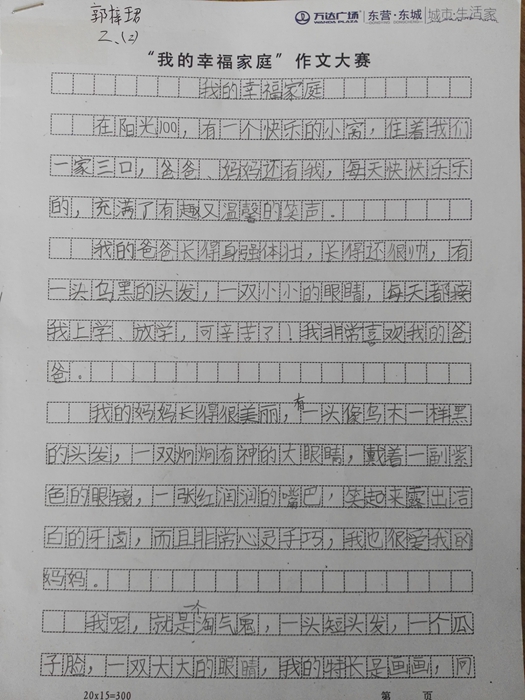 郭梓珺
二、(2)
万达广场 东营·东城 城市·生活家
WANDA PLAZA
“我的幸福家庭”作文大赛
我的幸福家庭
在阳光100，有一个快乐的小窝，住着我们
一家三口，爸爸、妈妈还有我，每天快快乐乐
的，充满了有趣又温馨的笑声．
我的爸爸长得身强体壮，长得还很帅，有
一头乌黑的头发，一双小小的眼睛，每天都接
我上学、放学，可辛苦了！我非常喜欢我的爸
爸．
我的妈妈长得很美丽，有一头像乌木一样黑
的头发，一双炯炯有神的大眼睛，戴着一副紫
色的眼镜，一张红润润的嘴巴，笑起来露出洁
白的牙齿，而且非常心灵手巧，我也很爱我的
妈妈．
我呢，就是个淘气鬼，一头短头发，一个瓜
子脸，一双大大的眼睛，我的特长是画画，问
20x15=300 第 页